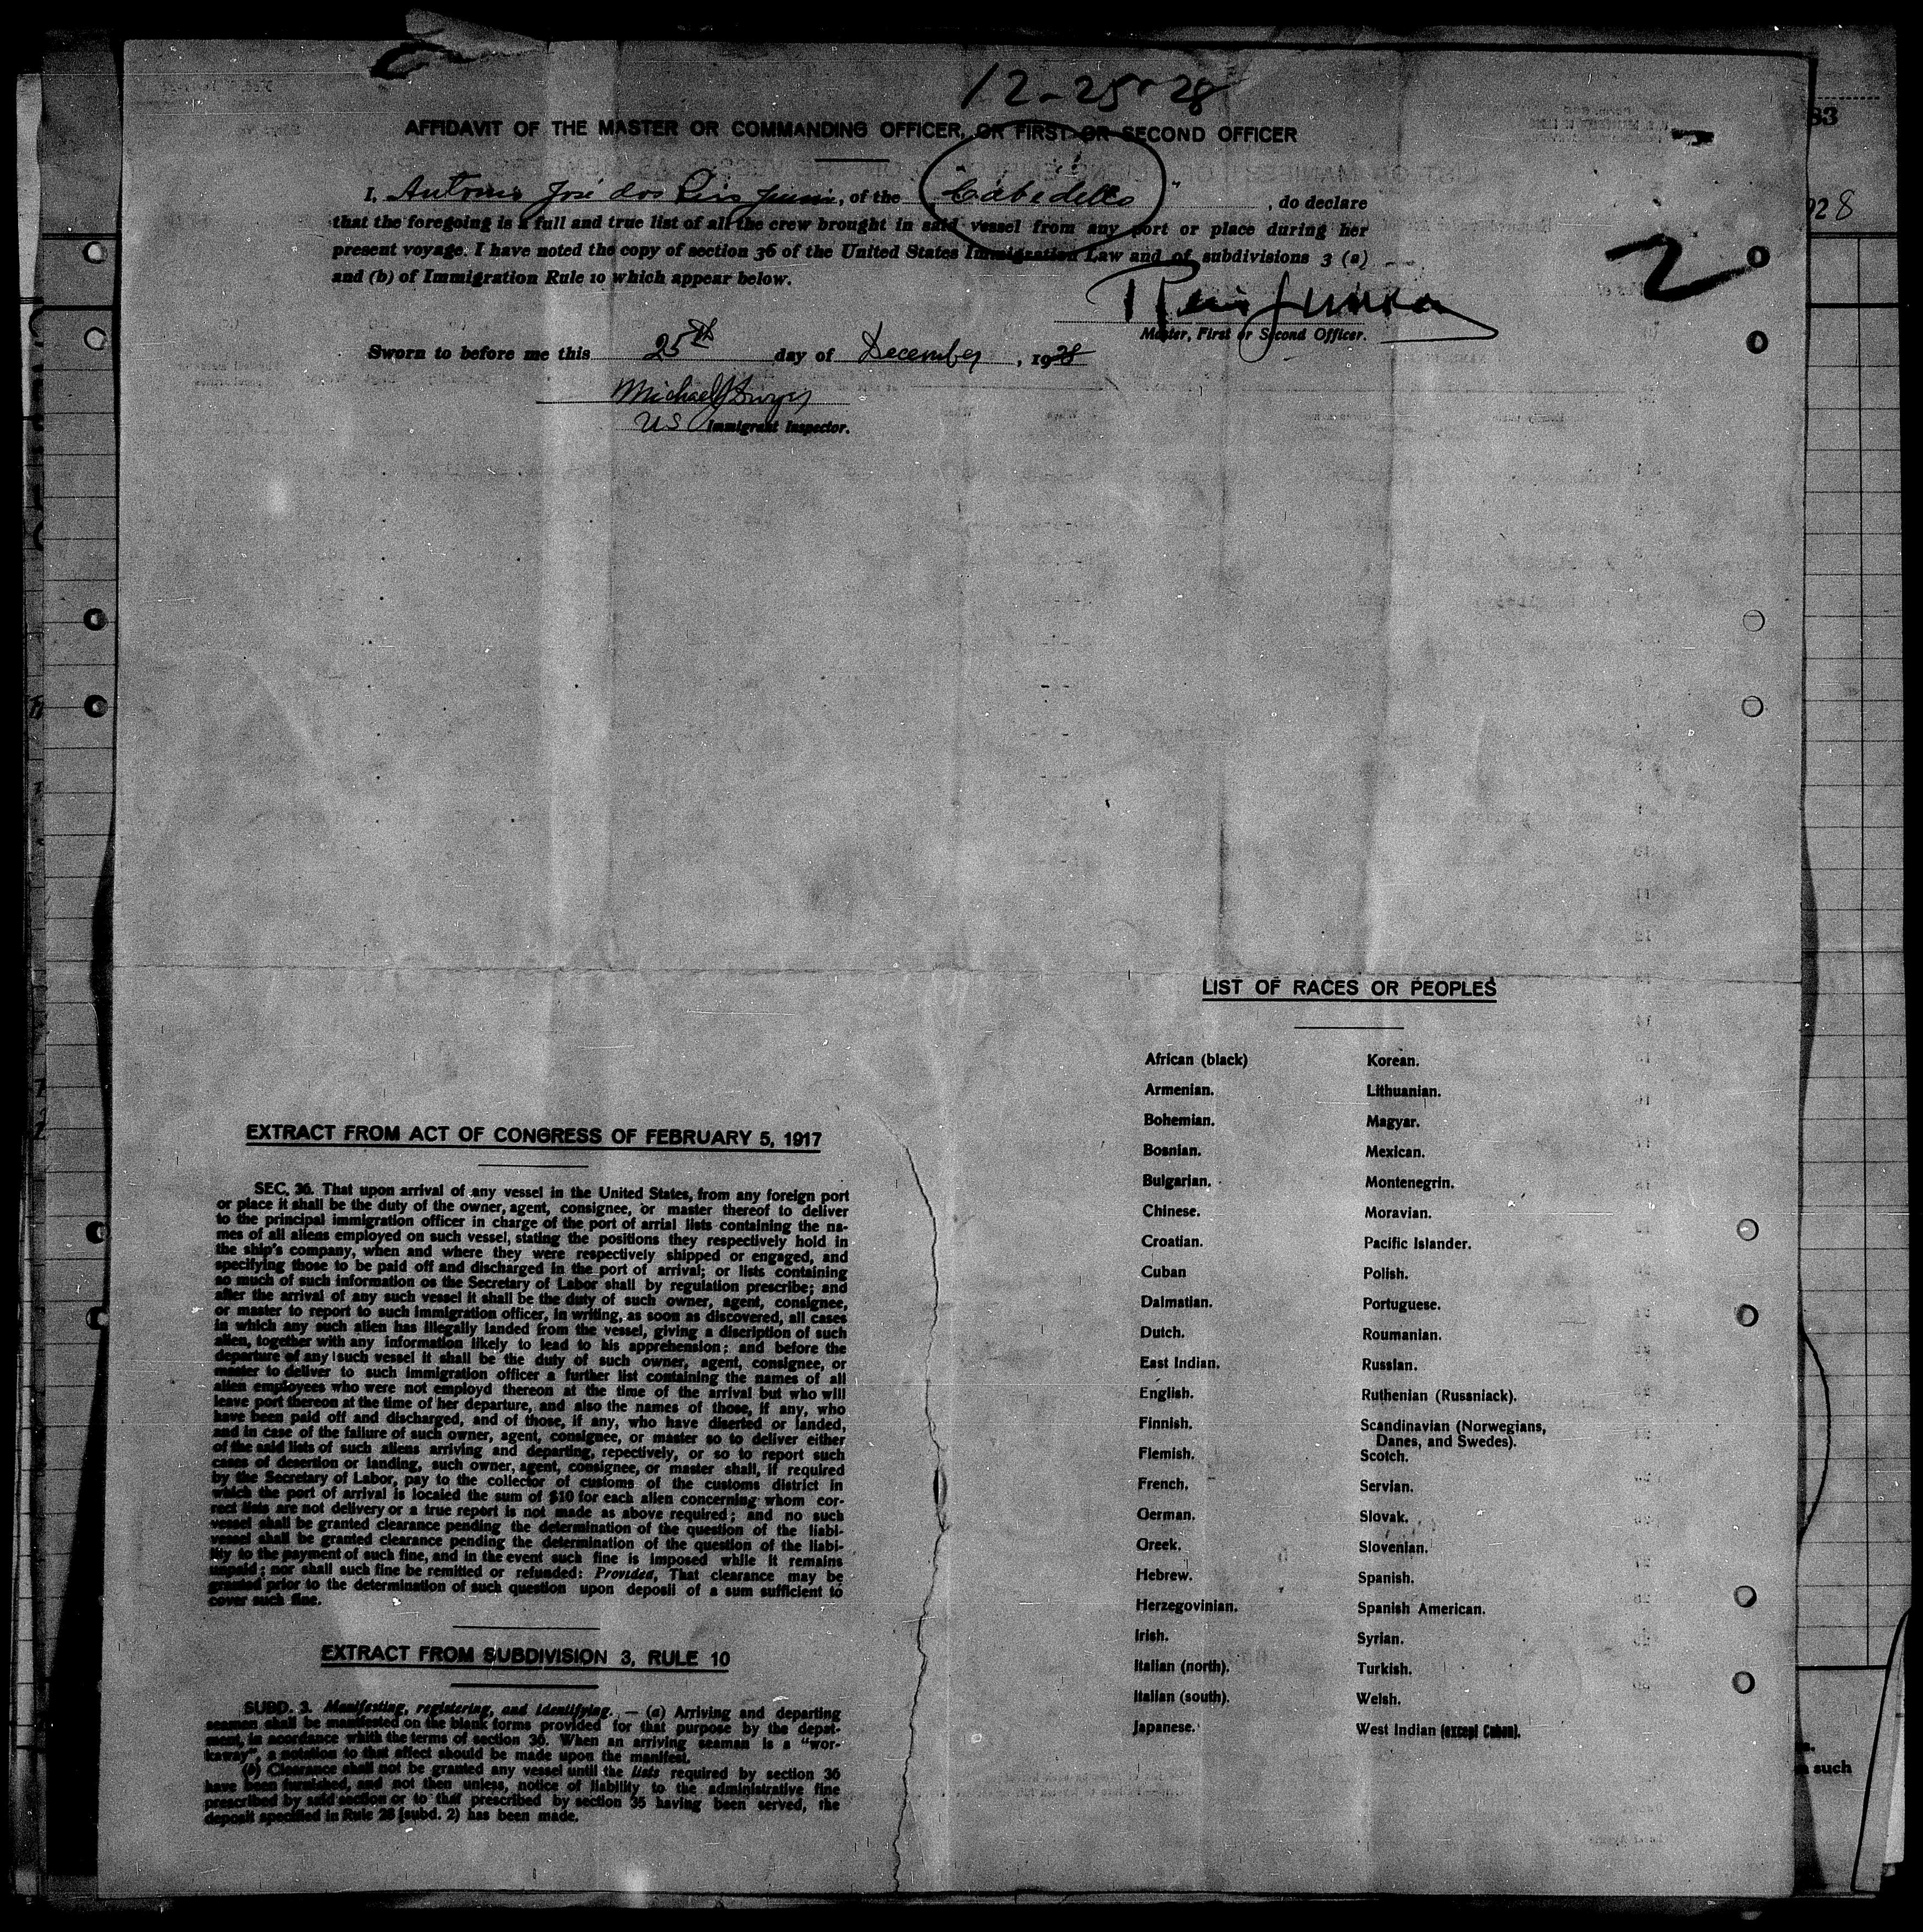 12-25-28
AFFIDAVIT OF THE MASTER OR COMMANDING OFFICER, OR FIRST OR SECOND OFFICER
I, Antonio José dos Reis Junior, of the "Cabedello", do declare
that the foregoing is a full and true list of all the crew brought in said vessel from any port or place during her
present voyage. I have noted the copy of section 36 of the United States Immigration Law and of subdivisions 3 (a)
and (b) of Immigration Rule 10 which appear below.
2
Reis Junior
Master, First or Second Officer.
Sworn to before me this 25th day of December, 1928
Michael J Dwyer
US Immigrant Inspector.
LIST OF RACES OR PEOPLES
African (black)
Armenian.
Bohemian.
Bosnian.
Bulgarian.
Chinese.
Croatian.
Cuban
Dalmatian.
Dutch.
East Indian.
English.
Finnish.
Flemish.
French.
German.
Greek.
Hebrew.
Herzegovinian.
Irish.
Italian (north).
Italian (south).
Japanese.
Korean.
Lithuanian.
Magyar.
Mexican.
Montenegrin.
Moravian.
Pacific Islander.
Polish.
Portuguese.
Roumanian.
Russian.
Ruthenian (Russniack).
Scandinavian (Norwegians,
Danes, and Swedes).
Scotch.
Servian.
Slovak.
Slovenian.
Spanish.
Spanish American.
Syrian.
Turkish.
Welsh.
West Indian (except Cuban).
EXTRACT FROM ACT OF CONGRESS OF FEBRUARY 5, 1917
SEC. 36. That upon arrival of any vessel in the United States, from any foreign port
or place it shall be the duty of the owner, agent, consignee, or master thereof to deliver
to the principal immigration officer in charge of the port of arrial lists containing the na-
mes of all aliens employed on such vessel, stating the positions they respectively hold in
the ship's company, when and where they were respectively shipped or engaged, and
specifying those to be paid off and discharged in the port of arrival; or lists containing
so much of such information os the Secretary of Labor shall by regulation prescribe; and
after the arrival of any such vessel it shall be the duty of such owner, agent, consignee,
or master to report to such immigration officer, in writing, as soon as discovered, all cases
in which any such alien has illegally landed from the vessel, giving a discription of such
alien, together with any information likely to lead to his apprehension; and before the
departure of any such vessel it shall be the duty of such owner, agent, consignee, or
master to deliver to such immigration officer a further list containing the names of all
alien employees who were not employd thereon at the time of the arrival but who will
leave port thereon at the time of her departure, and also the names of those, if any, who
have been paid off and discharged, and of those, if any, who have diserted or landed,
and in case of the failure of such owner, agent, consignee, or master so to deliver either
of the said lists of such aliens arriving and departing, repectively, or so to report such
cases of desertion or landing, such owner, agent, consignee, or master shall, if required
by the Secretary of Labor, pay to the collector of customs of the customs district in
which the port of arrival is locaied the sum of $10 for each alien concerning whom cor-
rect lists are not delivery or a true report is not made as above required; and no such
vessel shall be granted clearance pending the determination of the question of the liabi-
vessel shall be granted clearance pending the determination of the question of the liabi-
lity to the payment of such fine, and in the event such fine is imposed while it remains
unpaid; nor shall such fine be remitted or refunded: Provided, That clearance may be
granted prior to the determination of such question upon deposil of a sum sufficient to
cover such fine.
EXTRACT FROM SUBDIVISION 3, RULE 10
SUBD. 3. Manifesting, registering, and identifying. — (a) Arriving and departing
seamen shall be manifested on the blank forms provided for that purpose by the depat-
ment, in acordance whith the terms of section 36. When an arriving seaman is a "wor-
kaway", a notation to that affect should be made upon the manifest.
(b) Clearance shall not be granted any vessel until the lists required by section 36
have been furnished, and not then unless, notice of liability to the administrative fine
prescribed by said section or to that prescribed by section 35 having been served, the
deposit specified in Rule 28 (subd. 2) has been made.
83
928
such